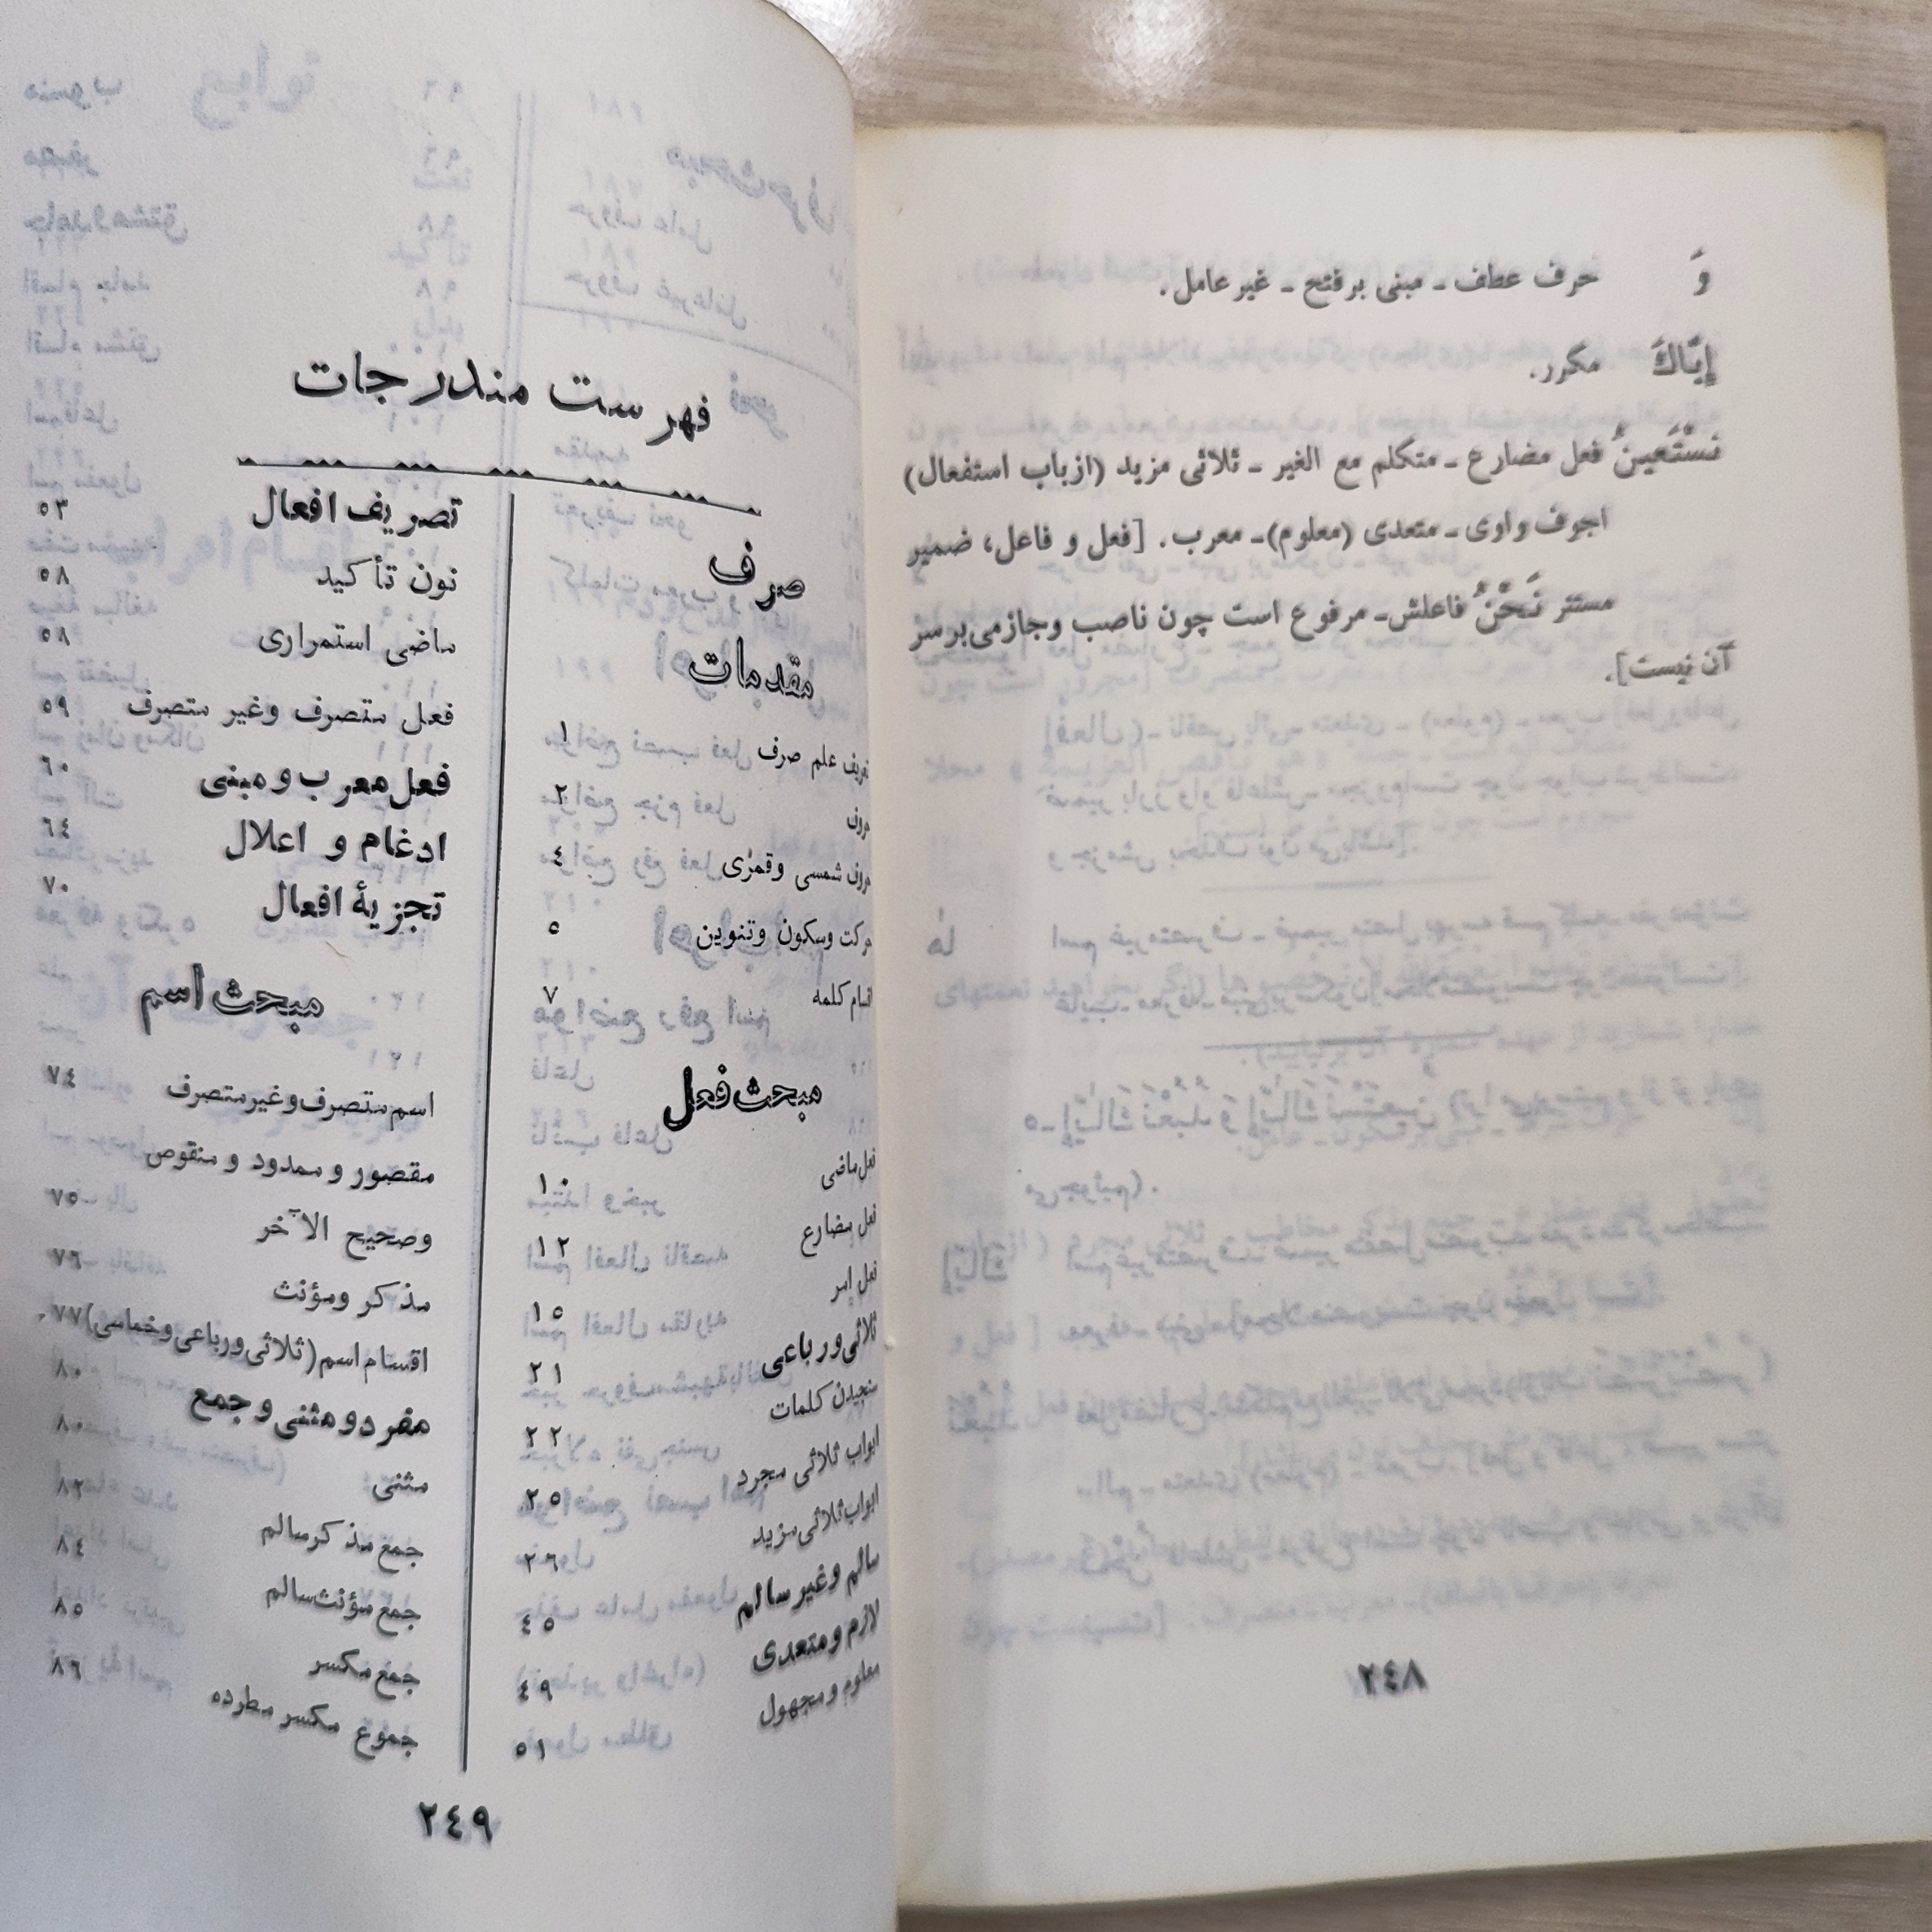 وَ حرف عطف ـ مبنی برفتح ـ غیر عامل.
إِیّاکَ مکرر.
نَسْتَعینُ فعل مضارع ـ متکلم مع الغیر ـ ثلاثی مزید (ازباب استفعال)
اجوف واوی ـ متعدی (معلوم)ـ معرب. [فعل و فاعل، ضمیر
مستتر نَحْنُ فاعلش ـ مرفوع است چون ناصب وجازمی‌برسر
آن نیست].
٢٤٨
فهرست مندرجات
صرف
مقدمات
تعریف علم صرف ١
حروف ٢
حروف شمسی وقمری ٤
حرکت وسکون وتنوین ٥
اقسام کلمه ٧
مبحث فعل
فعل ماضی ١٠
فعل مضارع ١٢
فعل امر ١٥
ثلاثی و رباعی ٢١
سنجیدن کلمات ٢٢
ابواب ثلاثی مجرد ٢٥
ابواب ثلاثی مزید ٢٦
سالم وغیر سالم ٤٥
لازم و متعدی ٤٩
معلوم و مجهول ٥١
تصریف افعال ٥٣
نون تأکید ٥٨
ماضی استمراری ٥٨
فعل متصرف وغیر متصرف ٥٩
فعل معرب و مبنی ٦٠
ادغام و اعلال ٦٤
تجزیۀ افعال ٧٠
مبحث اسم
اسم متصرف وغیر متصرف ٧٤
مقصور و ممدود و منقوص
وصحیح الآخر ٥٧
مذکر ومؤنث ٧٦
اقسام اسم (ثلاثی ورباعی وخماسی) ٧٧
مفرد و مثنی و جمع ٨٠
مثنی ٨٠
جمع مذکر سالم ٨٢
جمع مؤنث سالم ٨٤
جمع مکسر ٨٥
جموع مکسر مطرده ٨٦
٢٤٩